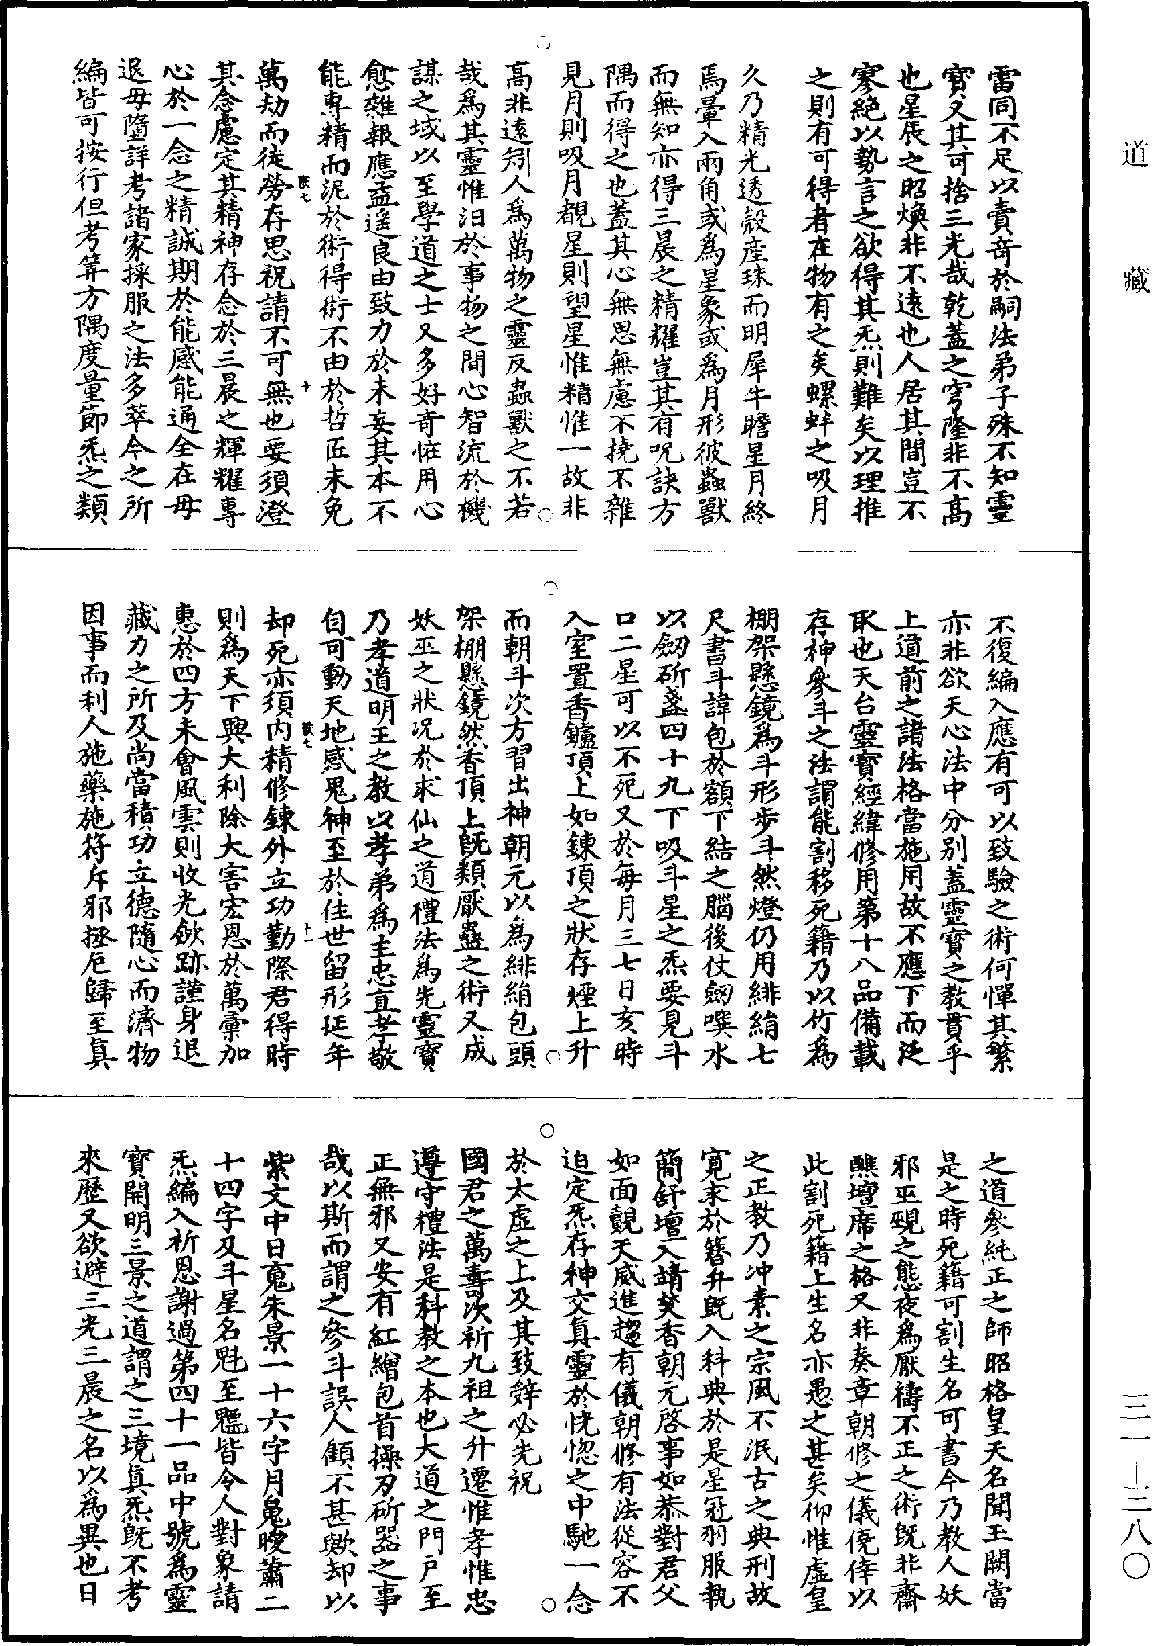 雷同不足以責奇於嗣法弟子殊不知靈
寶又其可捨三光哉乾蓋之穹隆非不高
也星辰之昭煥非不遠也人居其間豈不
寥絕以勢言之欲得其炁則難矣以理推
之則有可得者在物有之矣螺蚌之吸月
久乃精光透殼產珠而明犀牛瞻星月終
焉暈入兩角或為星象或為月形彼蟲獸
而無知亦得三晨之精耀豈其有呪訣方
隅而得之也蓋其心無思無慮不撓不雜
見月則吸月覩星則望星惟精惟一故非
高非遠矧人為萬物之靈反蟲獸之不若
哉為其靈惟汩於事物之間心智流於機
謀之域以至學道之士又多好奇恠用心
愈雜報應益遥良由致力於末妄其本不
能專精而泥於術得術不由於哲匠未免
萬劫而徒勞存思祝請不可無也要須澄
其念慮定其精神存念於三晨之輝耀專
心於一念之精誠期於能感能通全在毋
退毋墮詳考諸家採服之法多萃今之所
編皆可按行但考筭方隅度量節炁之類
不復編入應有可以致驗之術何憚其繁
亦非欲天心法中分別蓋靈寶之教貫乎
上道前之諸法格當施用故不應下而泛
取也天台靈寶經緯修用第十八品備載
存神參斗之法謂能割移死籍乃以竹為
棚架懸鏡為斗形步斗然燈仍用緋絹七
尺書斗諱包於額下結之腦後仗劒噀水
以劒斫盞四十九下吸斗星之炁要見斗
口二星可以不死又於每月三七日亥時
入室置香鑪頂上如鍊頂之狀存煙上升
而朝斗次方習出神朝元以為緋絹包頭
架棚懸鏡然香頂上旣類厭蠱之術又成
妖巫之狀況於求仙之道禮法為先靈寶
乃孝道明王之教以孝弟為主忠直孝敬
自可動天地感鬼神至於住世留形延年
却死亦須內精修鍊外立功勤際君得時
則為天下興大利除大害宏恩於萬彙加
惠於四方未會風雲則收光斂跡謹身退
藏力之所及尚當積功立德隨心而濟物
因事而利人施藥施符斥邪拯厄歸至真
之道參純正之師昭格皇天名聞玉闕當
是之時死籍可割生名可書今乃教人妖
邪巫覡之態夜為厭禱不正之術旣非齋
醮壇席之格又非奏章朝修之儀僥倖以
此割死籍上生名亦愚之甚矣仰惟虛皇
之正教乃冲素之宗風不泯古之典刑故
寬求於簪弁旣入科典於是星冠羽服執
簡舒壇入靖焚香朝元啓事如恭對君父
如面覿天威進趨有儀朝修有法從容不
迫定炁存神交真靈於恍惚之中馳一念
於太虛之上及其致辭必先祝
國君之萬壽次祈九祖之升遷惟孝惟忠
遵守禮法是科教之本也大道之門戶至
正無邪又安有紅繒包首操刀斫器之事
哉以斯而謂之參斗誤人顧不甚歟却以
紫文中日䰟朱景一十六字月䰟曖蕭二
十四字及斗星名魁至魓皆令人對象請
炁編入祈恩謝過第四十一品中號為靈
寶開明三景之道謂之三境真炁旣不考
來歷又欲避三光三晨之名以為異也日
道藏
三一—三八〇